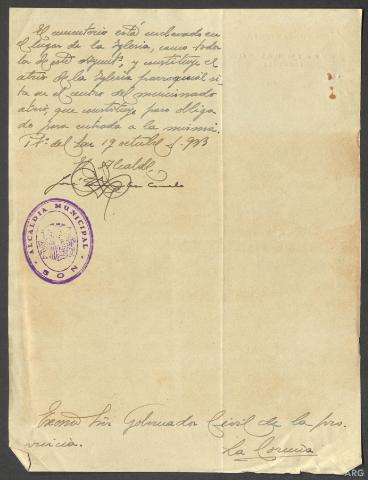 El cementerio está enclavado en
el lugar de la Iglesia, como todos
los de este Aymtº, y constituye el
atrio de la Iglesia parroquial si-
ta en el centro del mencionado
atrio, que constituye paso obliga
do para entrada a la misma.
Ptº del Son 19 octubre de 1933
El Alcalde,
José
ALCALDIA MUNICIPAL
SON
Excmo Sñr Gobernador Civil de la pro-
vincia.
La Coruña
ARG